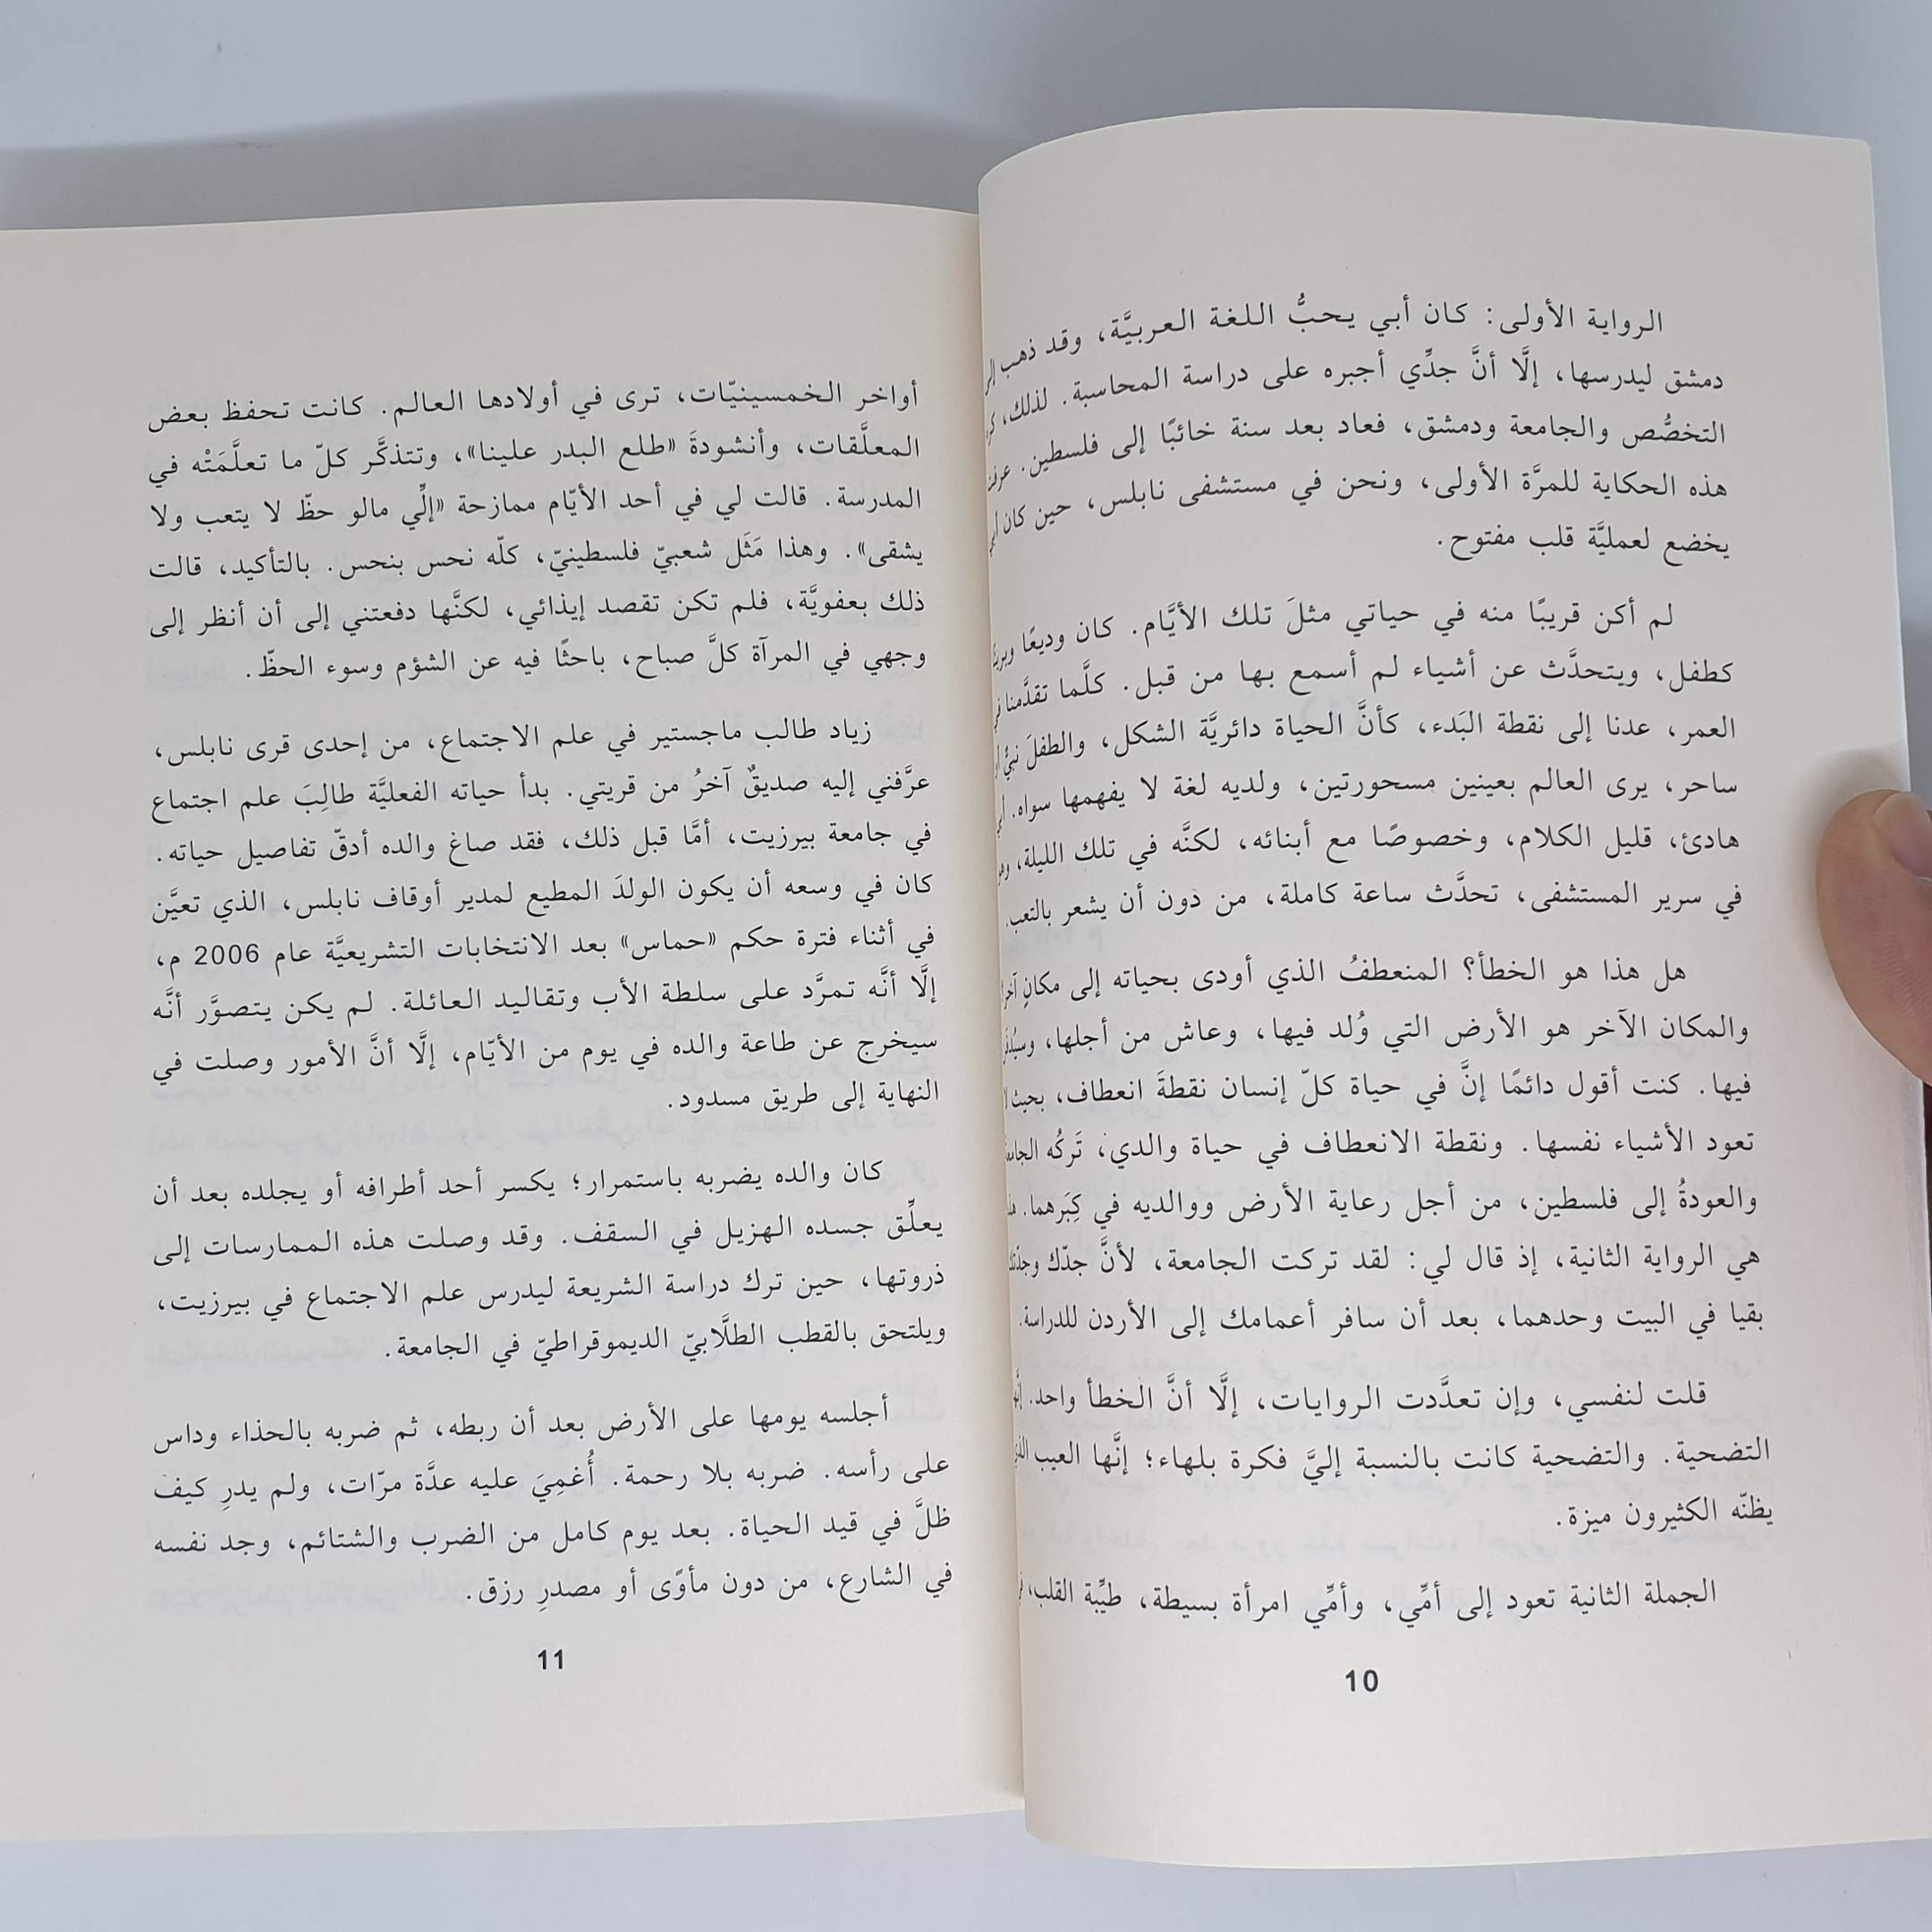 الرواية الأولى: كان أبي يحبُّ اللغة العربيَّة، وقد ذهب إلى
دمشق ليدرسها، إلَّا أنَّ جدِّي أجبره على دراسة المحاسبة. لذلك،
التخصُّص والجامعة ودمشق، فعاد بعد سنة خائبًا إلى فلسطين. عرفت
هذه الحكاية للمرَّة الأولى، ونحن في مستشفى نابلس، حين كان أبي
يخضع لعمليَّة قلب مفتوح.
لم أكن قريبًا منه في حياتي مثلَ تلك الأيَّام. كان وديعًا
كطفل، ويتحدَّث عن أشياء لم أسمع بها من قبل. كلَّما تقدَّمنا في
العمر، عدنا إلى نقطة البَدء، كأنَّ الحياة دائريَّة الشكل، والطفلَ نبيٌّ
ساحر، يرى العالم بعينين مسحورتين، ولديه لغة لا يفهمها سواه.
هادئ، قليل الكلام، وخصوصًا مع أبنائه، لكنَّه في تلك الليلة،
في سرير المستشفى، تحدَّث ساعة كاملة، من دون أن يشعر بالتعب.
هل هذا هو الخطأ؟ المنعطفُ الذي أودى بحياته إلى مكانٍ
والمكان الآخر هو الأرض التي وُلد فيها، وعاش من أجلها،
فيها. كنت أقول دائمًا إنَّ في حياة كلّ إنسان نقطةَ انعطاف، بحيث لا
تعود الأشياء نفسها. ونقطة الانعطاف في حياة والدي، تَركُه
والعودةُ إلى فلسطين، من أجل رعاية الأرض ووالديه في كِبَرهما.
هي الرواية الثانية، إذ قال لي: لقد تركت الجامعة، لأنَّ جدّك وجدّتك
بقيا في البيت وحدهما، بعد أن سافر أعمامك إلى الأردن للدراسة.
قلت لنفسي، وإن تعدَّدت الروايات، إلَّا أنَّ الخطأ واحد.
التضحية. والتضحية كانت بالنسبة إليَّ فكرة بلهاء؛ إنَّها العيب الذي
يظنّه الكثيرون ميزة.
الجملة الثانية تعود إلى أمِّي، وأمِّي امرأة بسيطة، طيِّبة القلب،
10
أواخر الخمسينيّات، ترى في أولادها العالم. كانت تحفظ بعض
المعلَّقات، وأنشودةَ «طلع البدر علينا»، وتتذكَّر كلّ ما تعلَّمَتْه في
المدرسة. قالت لي في أحد الأيّام ممازحة «إلِّي مالو حظّ لا يتعب ولا
يشقى». وهذا مَثَل شعبيّ فلسطينيّ، كلّه نحس بنحس. بالتأكيد، قالت
ذلك بعفويَّة، فلم تكن تقصد إيذائي، لكنَّها دفعتني إلى أن أنظر إلى
وجهي في المرآة كلَّ صباح، باحثًا فيه عن الشؤم وسوء الحظّ.
زياد طالب ماجستير في علم الاجتماع، من إحدى قرى نابلس،
عرَّفني إليه صديقٌ آخرُ من قريتي. بدأ حياته الفعليَّة طالِبَ علم اجتماع
في جامعة بيرزيت، أمَّا قبل ذلك، فقد صاغ والده أدقّ تفاصيل حياته.
كان في وسعه أن يكون الولدَ المطيع لمدير أوقاف نابلس، الذي تعيَّن
في أثناء فترة حكم «حماس» بعد الانتخابات التشريعيَّة عام 2006 م،
إلَّا أنَّه تمرَّد على سلطة الأب وتقاليد العائلة. لم يكن يتصوَّر أنَّه
سيخرج عن طاعة والده في يوم من الأيّام، إلَّا أنَّ الأمور وصلت في
النهاية إلى طريق مسدود.
كان والده يضربه باستمرار؛ يكسر أحد أطرافه أو يجلده بعد أن
يعلِّق جسده الهزيل في السقف. وقد وصلت هذه الممارسات إلى
ذروتها، حين ترك دراسة الشريعة ليدرس علم الاجتماع في بيرزيت،
ويلتحق بالقطب الطلَّابيّ الديموقراطيّ في الجامعة.
أجلسه يومها على الأرض بعد أن ربطه، ثم ضربه بالحذاء وداس
على رأسه. ضربه بلا رحمة. أُغمِيَ عليه عدَّة مرّات، ولم يدرِ كيف
ظلَّ في قيد الحياة. بعد يوم كامل من الضرب والشتائم، وجد نفسه
في الشارع، من دون مأوًى أو مصدرِ رزق.
11